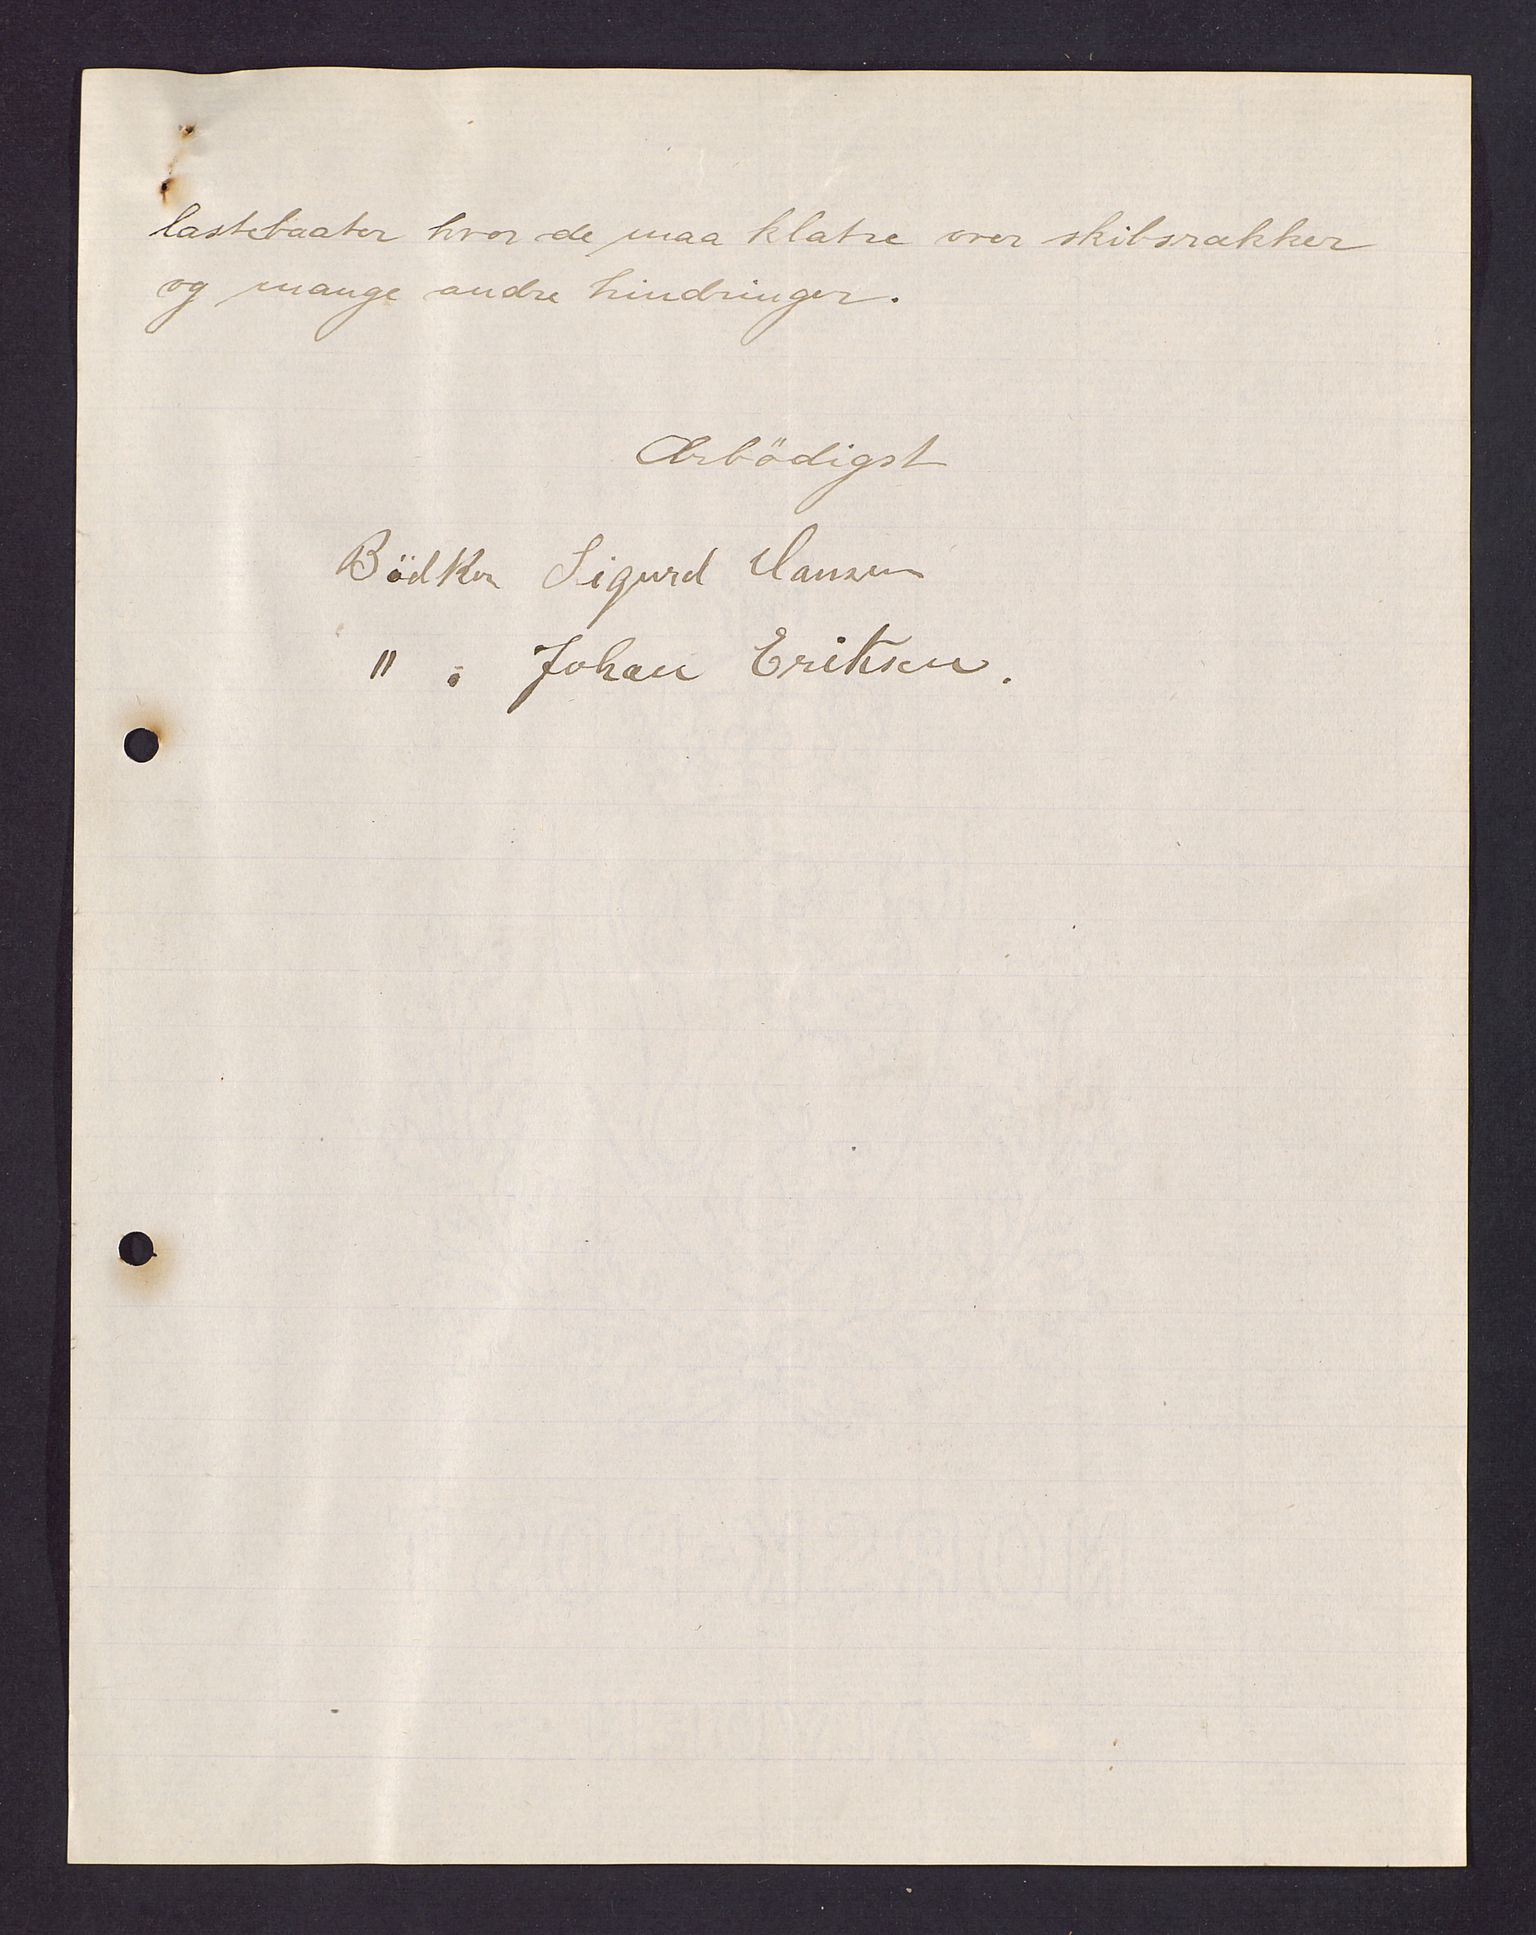 lastebaater hvor de maa klatre over skibsrakker
og mange andre hindringer.
Ærbödigst
Bödker Sigurd Hansen
" . Johan Eriksen.
NORSK POST